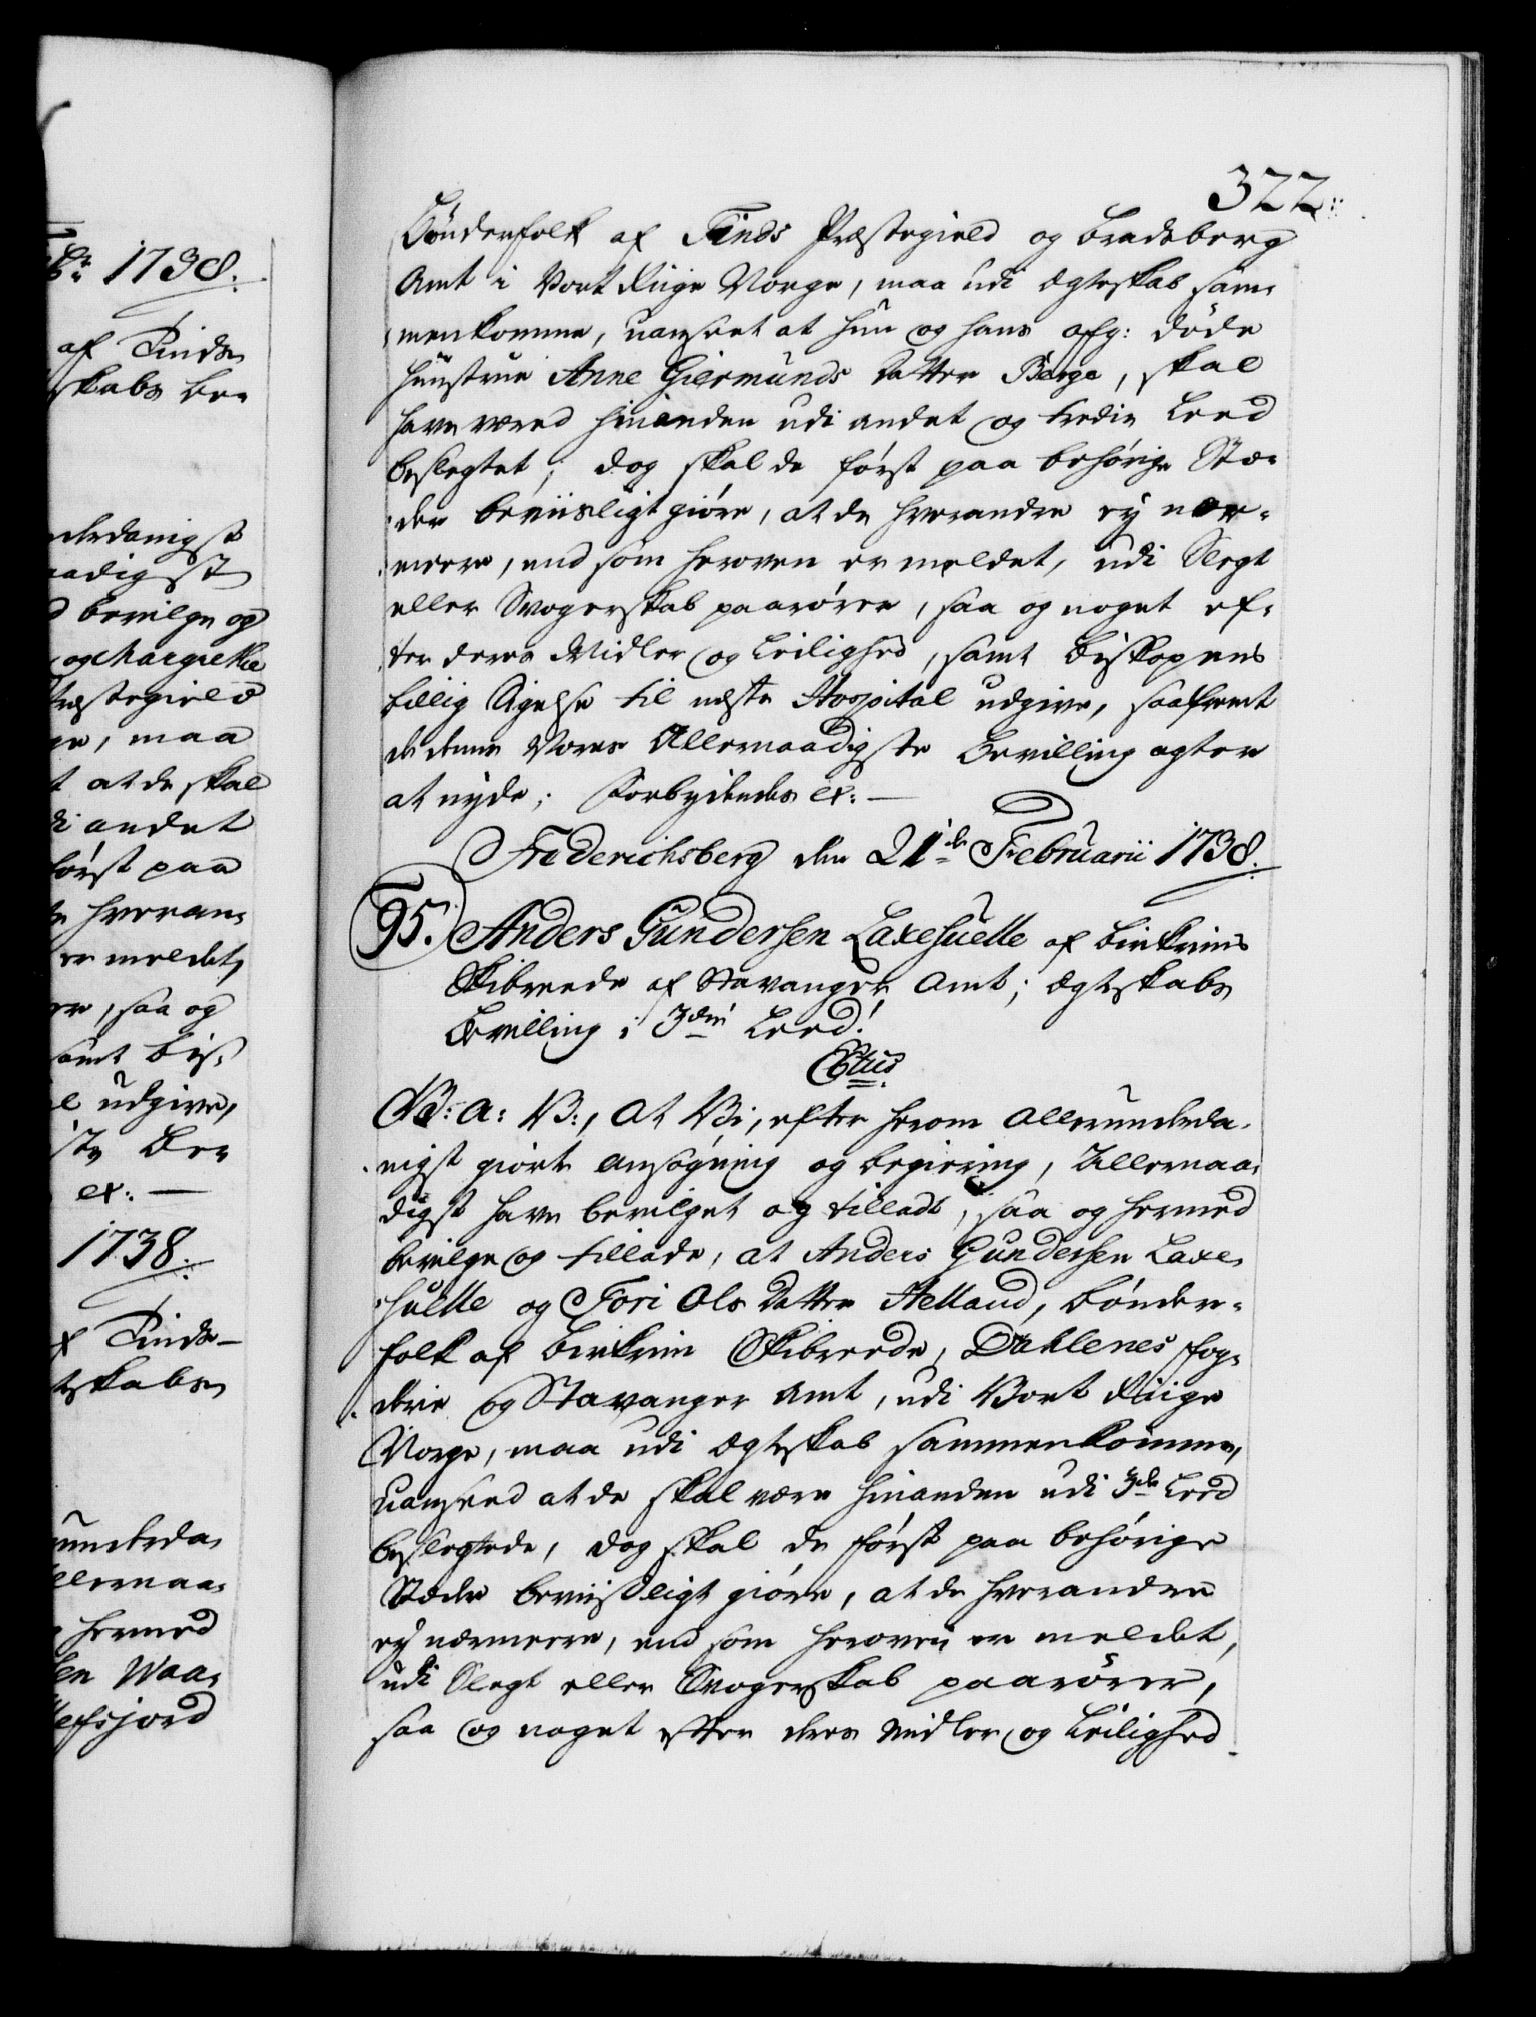 322.
Bönderfolk af Tinds Præstegield og Bradsberg
Amt i Vort Riige Norge, maa udi Ægteskab sam-
menkomme, uanseet at hun og hans afg: döde
Hüustrue Anne Giermunds Datter Berge, skal
have været hinanden udi andet og tredie Leed
beslegtet; dog skal de först paa behörige Stæ-
der beviisligt giöre, at de hverandre ey nær-
meere, end som heroven er meldet, udi Slegt
eller Svogerskab paarörer, saa og noget ef-
ter deres Midler og Leilighed, samt Biskopens
billig Sigelse til neste Hospital udgive, saafremt
de denne Vores Allernaadigste Bevilling agter
at nyde; Forbydendes etc: —
Friderichsberg den 21de Februarii 1738.
95. Anders Gundersen Laxesuelle af Birkrims
Skibreede af Stavanger Amt; Ægteskabs
Bevilling i 3die Leed!
C6tus
V: a: V:, At Vi, efter herom allerunderda-
nigst giorte ansögning og begiering, Allernaa-
digst have bevilget og tilladt, saa og hermed
bevilge og tillade, at Anders Gundersen Laxe-
suelle og Tori Ols Datter Helland, Bönder-
folk af Birkrim Skibreede, Dahlenes Fog-
derie og Stavanger Amt, udi Vort Riige
Norge, maa udi Ægteskab sammenkomme,
uanseed at de skal være hinanden udi 3de Leed
beslegtede, dog skal de först paa behörige
Stæder beviisligt giöre, at de hverandre
ey nærmeere, end som heroven er meldet,
udi Slegt eller Svogerskab paarörer,
saa og noget efter deres Midler og Leilighed
1738.
af Tinds
skabs Be-
nderdanigst
naadigst
bevilge og
og Margrethe
Præstegield
ge, maa
t at de skal
di andet
först paa
hveran-
er meldet,
er, saa og
samt Bis-
udgive,
ste Be-
etc: —
1738.
f Tinds
teskabs
runderda-
llernaa-
hermed
sen Waa-
efsjord